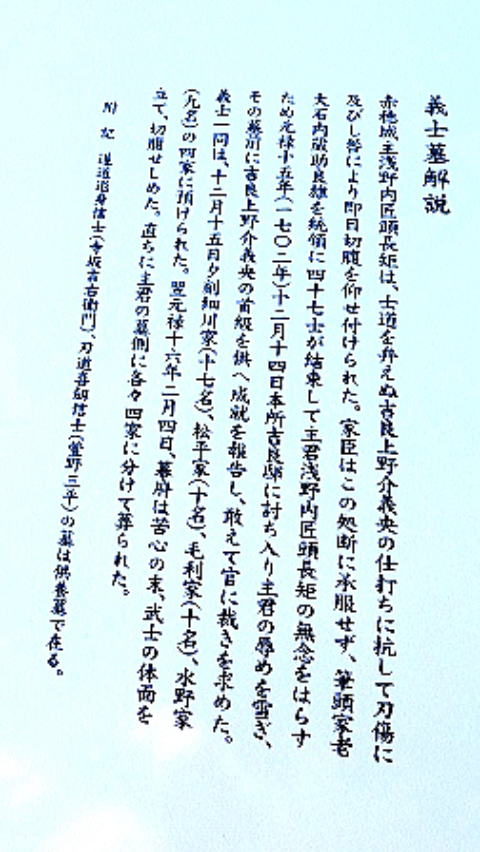 義士墓解説
赤穂城主浅野内匠頭長矩は、士道を弁えぬ吉良上野介義央の仕打ちに抗して刃傷に
及びし咎により即日切腹を仰せ付けられた。家臣はこの処断に承服せず、筆頭家老
大石内蔵助良雄を統領に四十七士が結束して主君浅野内匠頭長矩の無念をはらす
ため元禄十五年(一七〇二年)十二月十四日本所吉良邸に討ち入り主君の辱めを雪ぎ、
その墓前に吉良上野介義央の首級を供へ成就を報告し、敢えて官に裁きを求めた。
義士一同は、十二月十五日夕刻細川家(十七名)、松平家(十名)、毛利家(十名)、水野家
(九名)の四家に預けられた。翌元禄十六年二月四日、幕府は苦心の末、武士の体面を
立て、切腹せしめた。直ちに主君の墓側に各々四家に分けて葬られた。
附記 遂道退身信士(寺坂吉右衛門)、刃道喜剱信士(萱野三平)の墓は供養墓で在る。